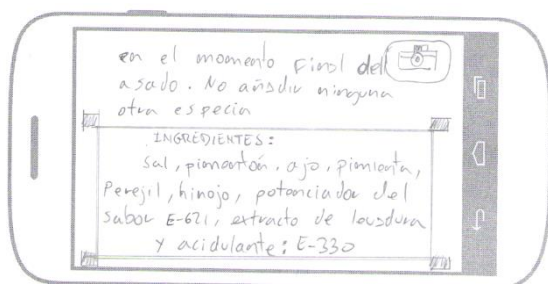 en el momento final del
asado. No añadir ninguna
otra especia
INGREDIENTES:
Sal, pimentón, ajo, pimienta,
Perejil, hinojo, potenciador del
sabor E-621, extracto de levadura
y acidulante: E-330